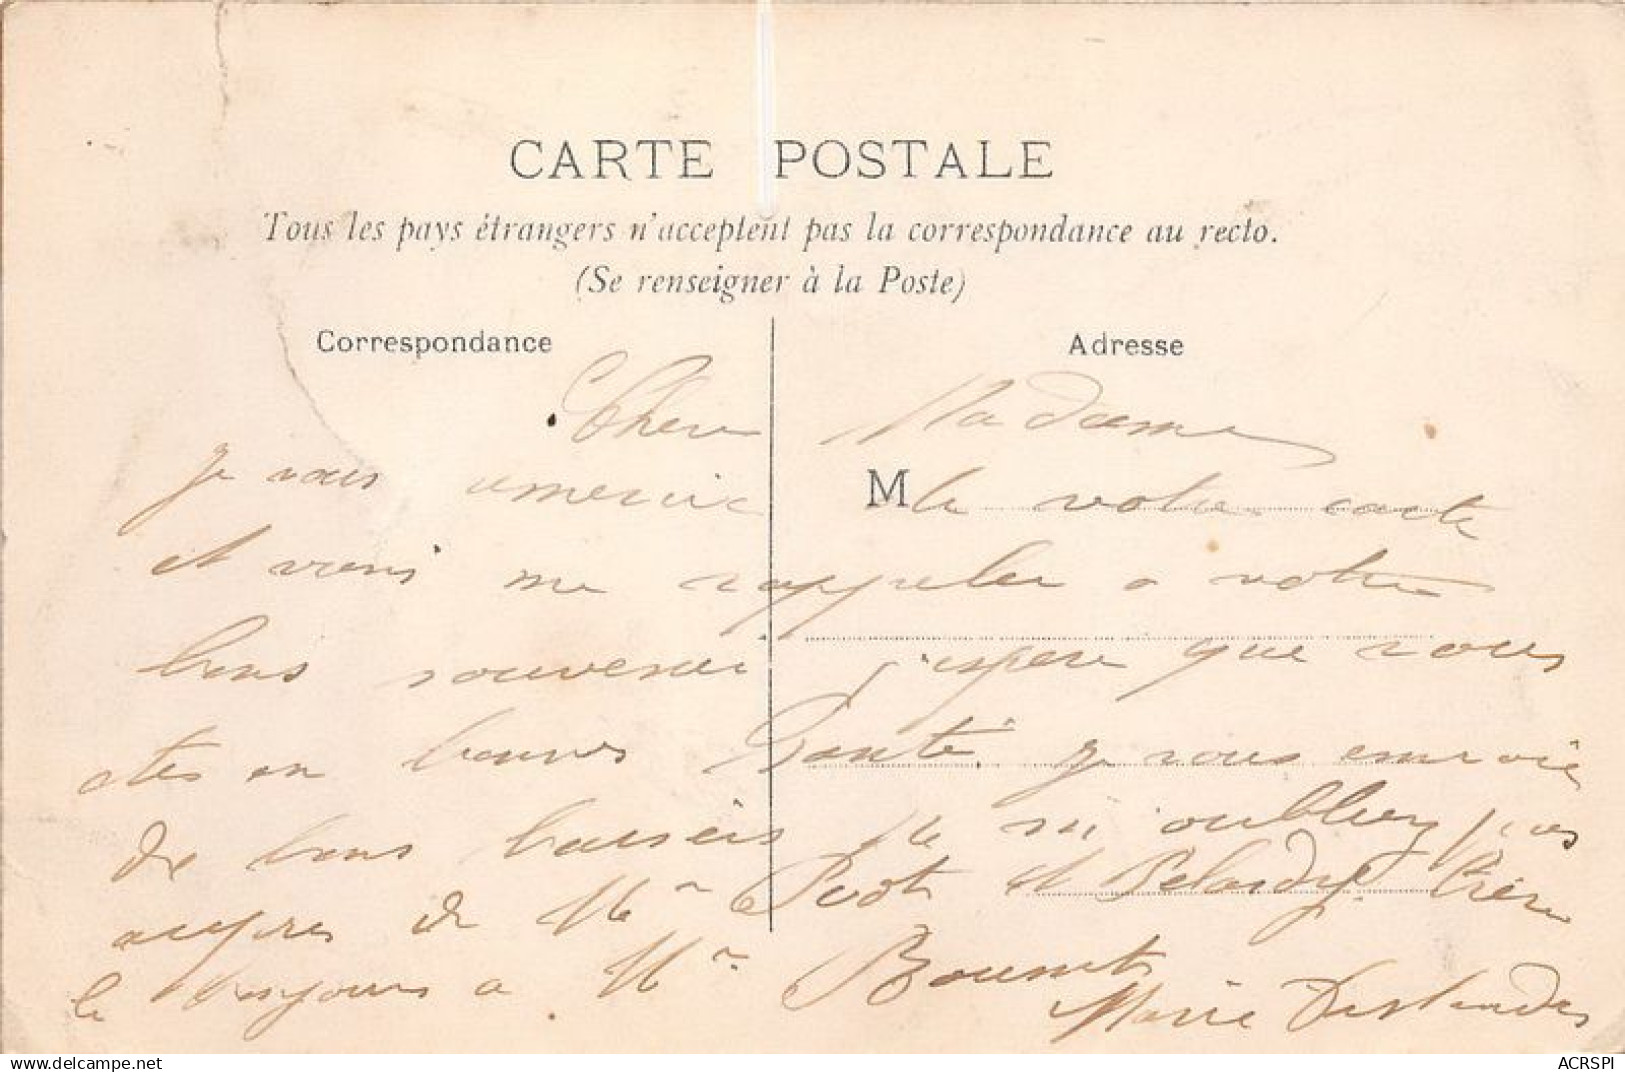 CARTE POSTALE
Tous les pays étrangers n'acceptent pas la correspondance au recto.
(Se renseigner à la Poste)
Correspondance
Adresse
Chere Madame
je vous remercie M de votre carte
et viens me rappeler a votre
bons souvenir j'espere que vous
etes en bonnes Santé. je vous envoie
de bons baisers je ni oubliez pas
aupres de Mm et
le bonjours a Mm Bonnet
Marie Deslandes
www.delcampe.net
ACRSPI